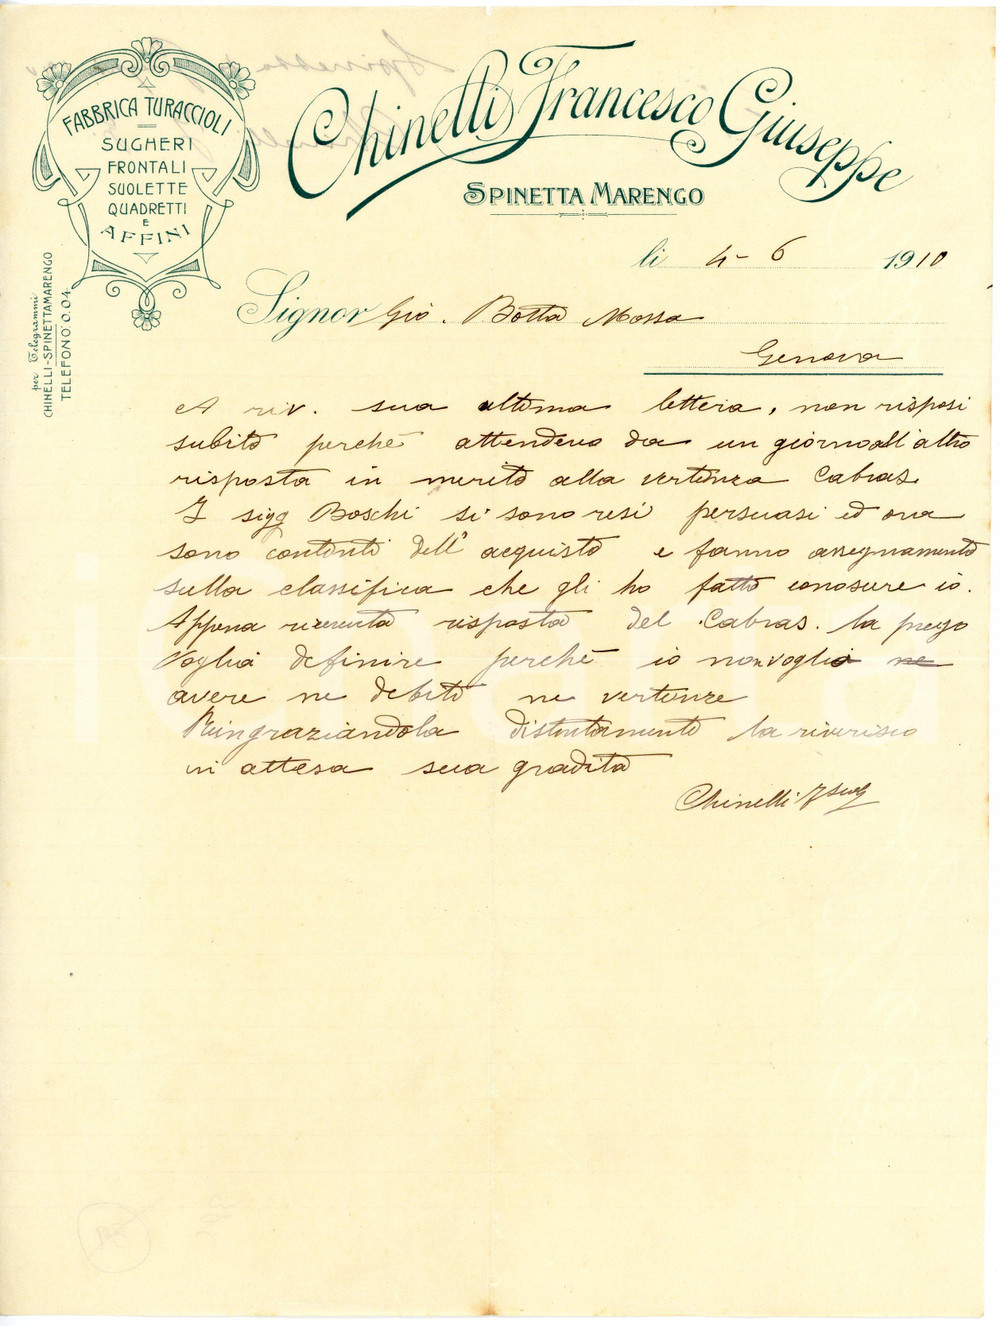 FABBRICA TURACCIOLI
SUGHERI
FRONTALI
SUOLETTE
QUADRETTI
E
AFFINI
per Telegrammi
CHINELLI-SPINETTAMARENGO
TELEFONO 0.04
Chinelli Francesco Giuseppe
SPINETTA MARENGO
li 4-6 1910
Signor Gio. Botta Mossa
Genova
A riv. sua ultima lettera, non risposi
subito perché attendevo da un giorno all'altro
risposta in merito alla vertenza Cabras.
I sigg Boschi si sono resi persuasi ed ora
sono contenti dell' acquisto e fanno assegnamento
sulla classifica che gli ho fatto conoscere io.
Appena ricevuta risposta del Cabras. la prego
voglia definire perché io non voglio ne
avere ne debiti ne vertenze
Ringraziandola distintamente la riverisco
in attesa sua gradita
Chinelli
iCharta